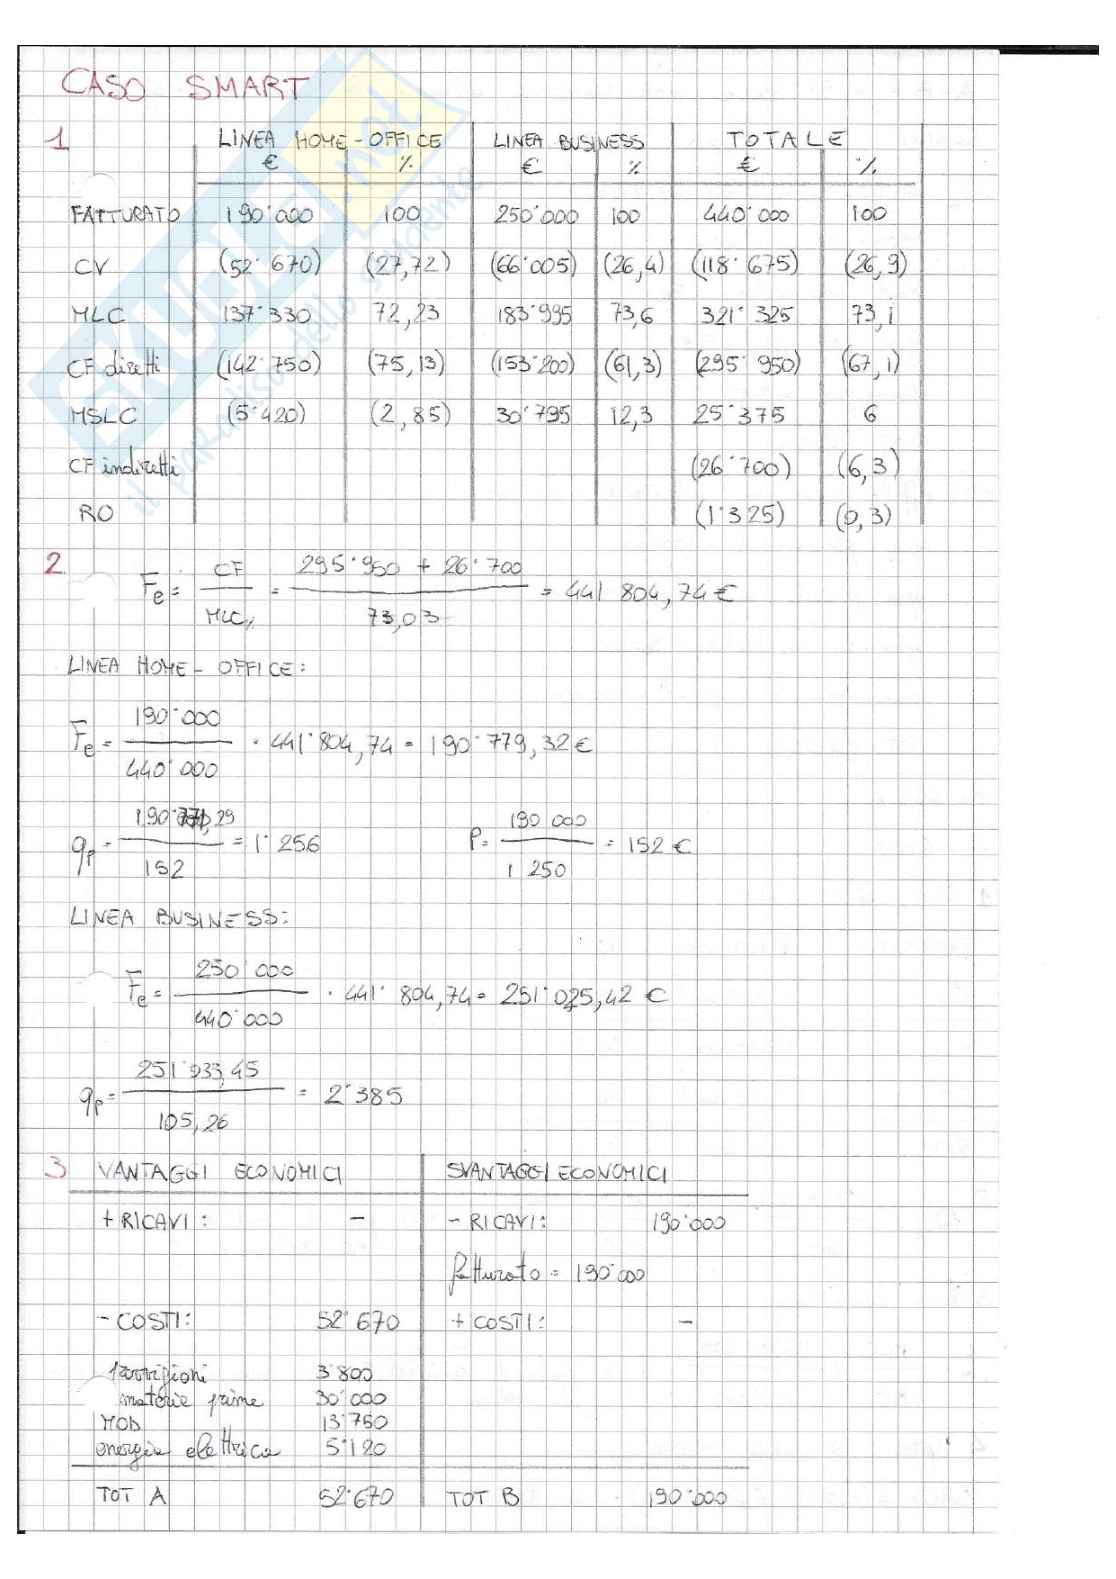 CASO SMART
1 LINEA HOME-OFFICE LINEA BUSINESS TOTALE
€ % € % € %
FATTURATO 190'000 100 250'000 100 440'000 100
CV (52'670) (27,72) (66'005) (26,4) (118'675) (26,9)
MLC 137'330 72,23 183'995 73,6 321'325 73,1
CF diretti (142'750) (75,13) (153'200) (61,3) (295'950) (67,1)
MSLC (5'420) (2,85) 30'795 12,3 25'375 6
CF indiretti (26'700) (6,3)
RO (1'325) (0,3)
2 Fe = CF / MLC% = 295'950 + 26'700 / 73,03 = 441 804,74 €
LINEA HOME-OFFICE:
Fe = 190'000 / 440'000 · 441'804,74 = 190'779,32 €
qp = 190'771,29 / 152 = 1'256 P = 190 000 / 1 250 = 152 €
LINEA BUSINESS:
Fe = 250'000 / 440'000 · 441'804,74 = 251'025,42 €
qp = 251'933,45 / 105,26 = 2'385
3 VANTAGGI ECONOMICI SVANTAGGI ECONOMICI
+ RICAVI: - - RICAVI: 190'000
fatturato = 190'000
- COSTI: 52'670 + COSTI: -
provvigioni 3'800
materie prime 30'000
MOD 13'750
energia elettrica 5'120
TOT A 52'670 TOT B 190'000
SKUOLA.net
il paradiso dello studente